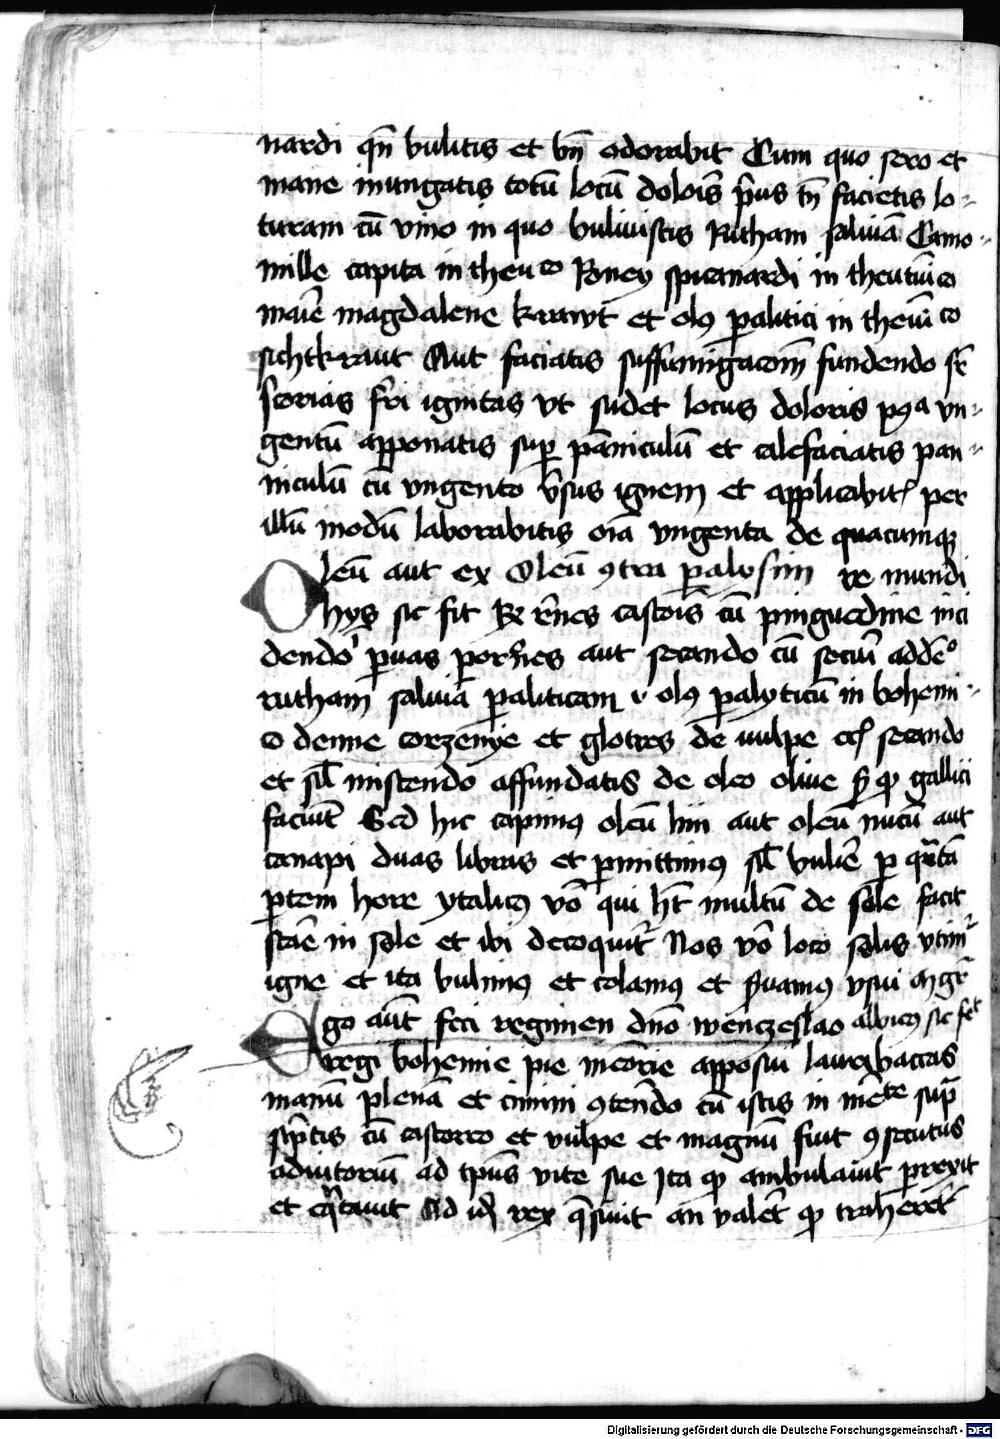 nardi qn̄ bulitis et bn̄ odorabit Cum quo sero et
mane inungatis totū locū dolois̄ p̄us tn̄ facietis lo-
turam cū vino in quo bulivistis Rutham salviā Camo-
mille capita in theuco Romey spicanardi in theutuico
maīe magdalene krawt et olꝰ ꝑalitici in theuīco
sichtkraut Aut faciatis suffumigacōm fundendo sr̄
scorias fri ignitas vt sudet locus doloris pꝰa vn-
gentū apponatis suꝑ pāniculū et calefaciatis pan-
niculū cū vngento v̄sus ignem et applicabit per
illū modū laborabitis oīa vngenta de quacumqꝫ
Oleū aut ex Oleū ꝯtra ꝑalysim re mundi
hys sic fit Rx rēnes castois̄ cū pinguedine inci
dendo ꝑuas porc̄nes aut secando cū addēo
rutham salviā ꝑaliticam olꝰ ꝑalyticū in bohemi-
co denne corzenye et glotres de vulpe secando
et sil̄ miscendo affundatis de oleo olive gallici
faciūt Sed hic capimꝰ oleū lini aut oleū nucū aut
canapi duas libras et ꝑmittimꝰ sil̄ bulīe ꝑ qr̄tā
ꝑtem hore ytalicꝰ vō qui ht̄ multū de sole facit
stāe in sole et ibi decoquit̄ Nos vō loco solis vtim̄
igne et ita bulimꝰ et colamꝰ et ẜuamꝰ usui
Ego aūt feci regimen dn̄o wenczeslao albicꝰ sic fet
regi bohemie pie mēorie apposui lauri baccas
manū plenā et cimini ꝯtēndo cū istis in mēte sup̄
sp̄tis cū castoreo et vulpe et magnū fuit ꝯsecutus
adiutoriū ad tp̄us vite sue Ita ꝙ ambulavit ꝑrexit
et eq̄tavit Ad id rex q̄sivit an valēt ꝙ trahēret
Digitalisierung gefördert durch die Deutsche Forschungsgemeinschaft - DFG